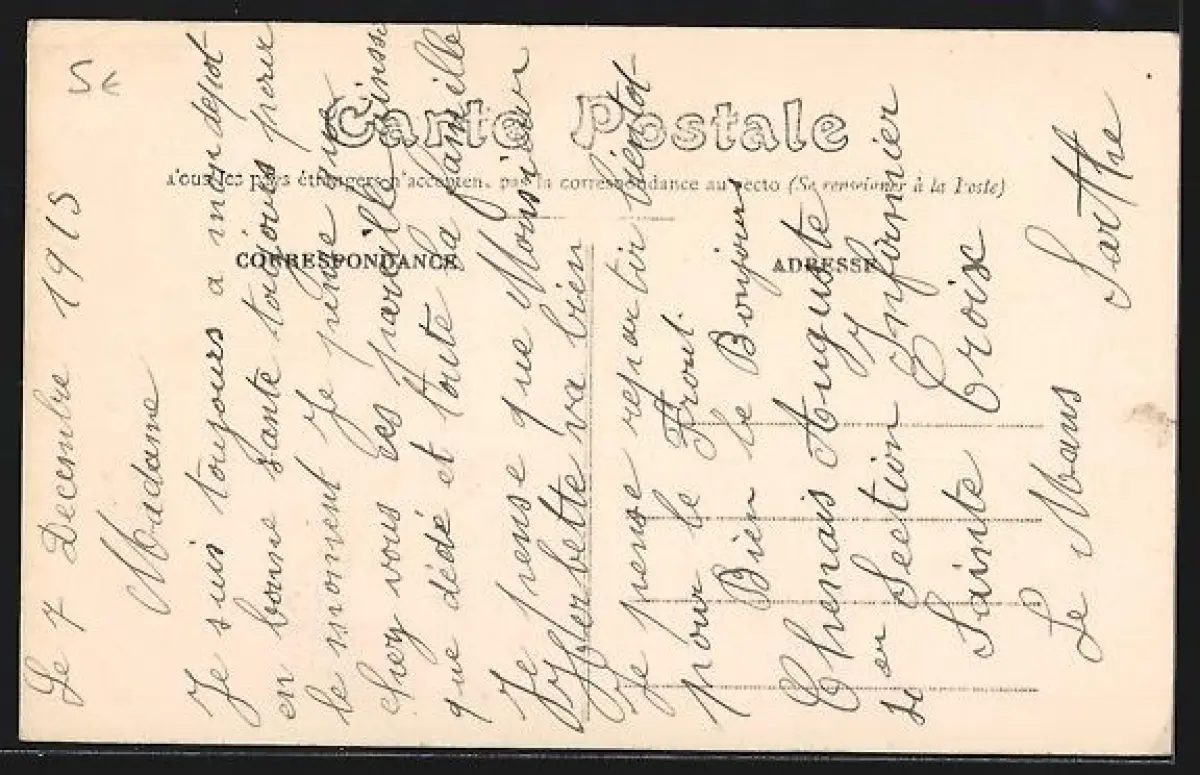 5€
Carte Postale
Tous les pays étrangers n'acceptent pas la correspondance au recto (Se renseigner à la Poste)
CORRESPONDANCE
ADRESSE
Le 7 Decembre 1915
Madame
Je suis toujours a mon depot
en bonne sante toujours pour
le moment Je pense que
chez vous ces pareille ainssi
que dédé et toute la famille
Je pense que Monsieur
Herbette va bien
Je pense repartir bientot
pour le Front.
Bien le Bonjour
Chenais Auguste
Section Infirmier
Sainte Croix
Le Mans Sarthe